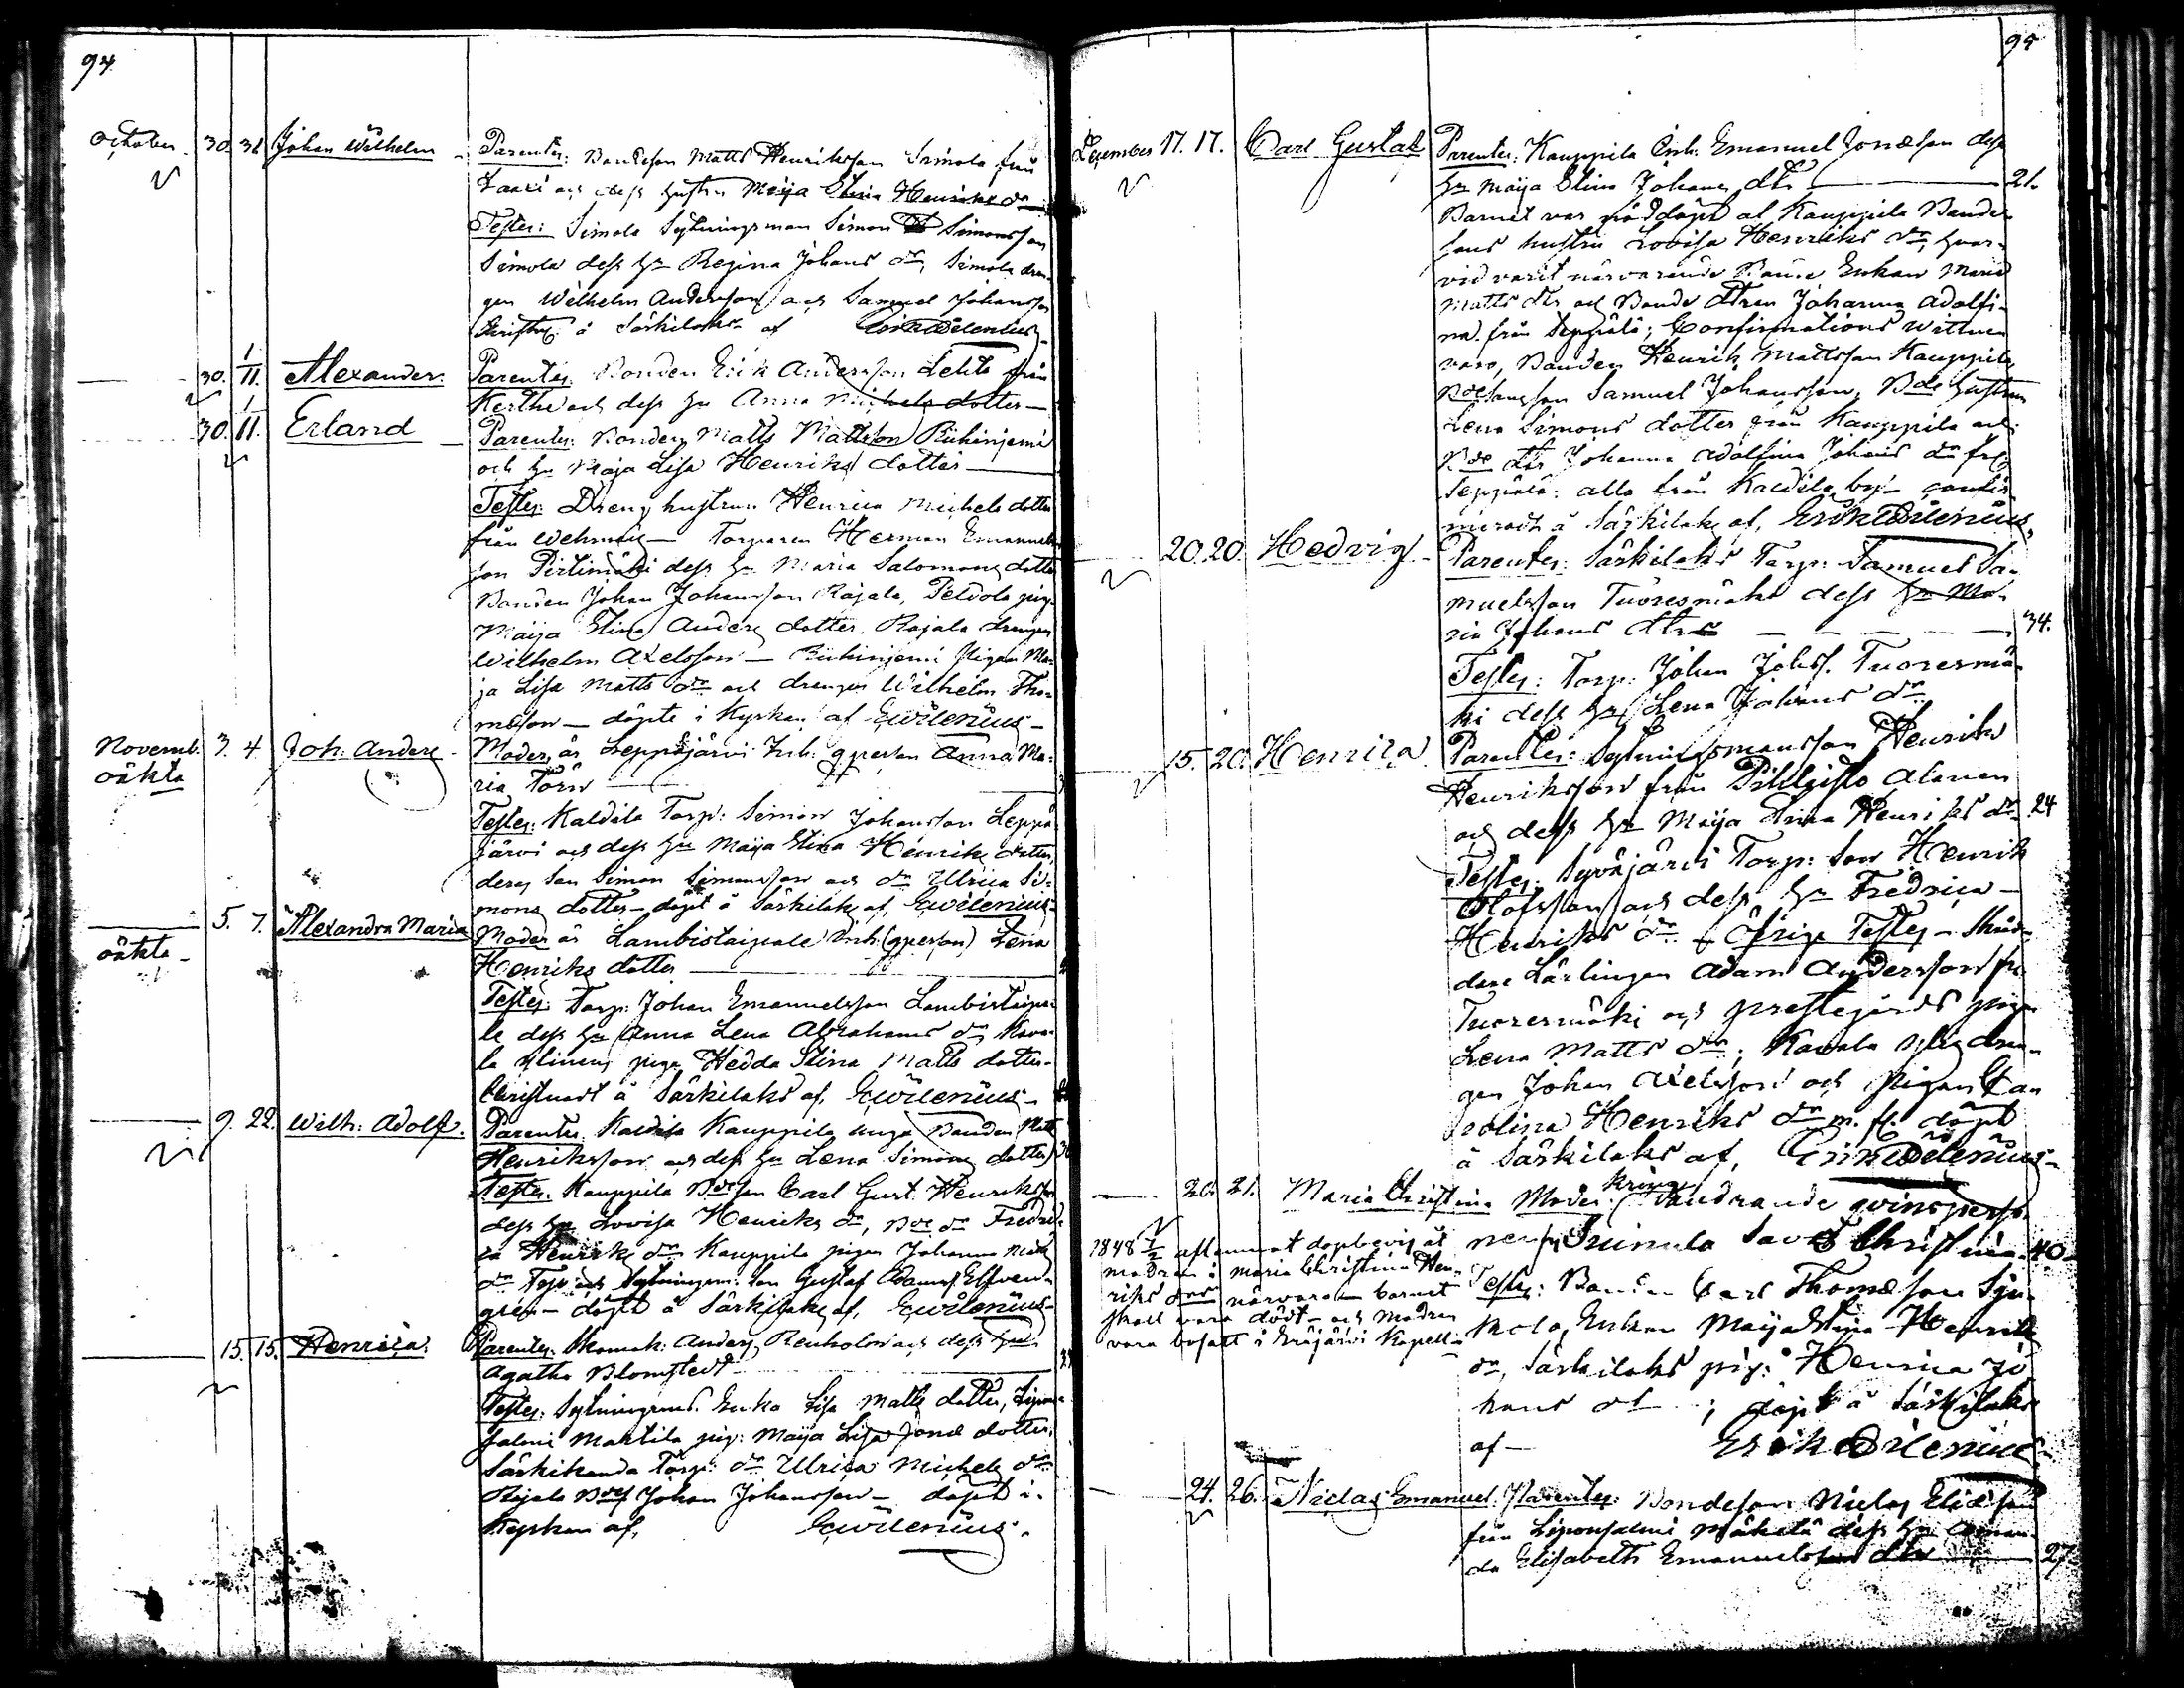 94.
October 30. 31 Johan Wilhelm Parentes: Bondeson Matts Henriksson Simola från
och dess hustru Maija Stina Henriks dr
Testes: Simola Sytningsman Simon Simonsson
Simola dess hu Regina Johans dr, Simola dren-
gen Wilhelm Andersson och Samuel Johansson
å Särkilaks af Erik Wilenius
30. 1/11. Alexander. Parentes: Bonden Erik Andersson Lehti från
Kerthe och dess hu Anna Michels dotter —
30. 1/11. Erland Parentes: Bonden Matts Mattson Riihinjemi
och hu Maja Lisa Henriks dotter
Testes: Dreng hustrun Henrica Michels dotter
från Wehmais — Torparen Herman Emanuels
son Pirtimäki dess hu Maria Salomons dotter
Bonden Johan Johansson Rajala, Peldola pig.
Maija Stina Anders dotter. Rajala drengen
Wilhelm Axelsson — Riihinjemi Pigan Ma-
ja Lisa Matts dr och drengen Wilhelm Tho-
mæson — döpte i Kyrkan af EWilenius —
Novemb. 3. 4 Joh: Anders Moder är Leppäjärvi Inh: qperson Anna Ma-
oäkta
ria Törn
Testes: Kaldila Torp: Simon Johansson Leppä-
järvi och dess hu Maija Stina Henriks dotter,
deras Son Simon Simonsson och dr Ulrica Si-
mons dotter — döpt å Särkilaks af, EWilenius —
5. 7. Alexandra Maria Moder är Lambistaipale Inh: (qperson) Lena
oäkta —
Henriks dotter
Testes: Torp: Johan Emanuelsson Lambistaipa-
le dess hu Anna Lena Abrahams dr Kava-
la piga Hedda Stina Matts dotter.
Christnadt å Särkilaks af, EWilenius —
9. 22. Wilh: Adolf. Parentes: Kaldila Kauppila unga Bonden Matts
Henriksson och dess hu Lena Simons dotter
Testes: Kauppila Bdeson Carl Gust: Henriksson
dess hu Lovisa Henriks dr, Bde dr Fredri-
ca Henriks dr Kauppila pigan Johanna Matts
dr Sytningsm: Son Gustaf Adamss. Elfven-
gren — döpt å Särkilaks af, EWilenius —
15. 15. Henrica. Parentes: Skomak: Anders Renholm och dess hu
Agatha Blomstedt
Testes: Sytningsm. Enka Lisa Matts dotter, Liponsalmi
salmi Mahtila pig: Maija Lisa Jonæ dotter,
Särkikanda Torp: dr Ulrica Michels dr
Rajala Bdes Johan Johansson — döpt i
Kyrkan af, EWilenius.
95
December 17. 17. Carl Gustaf Parentes: Kauppila Inh: Emanuel Jonæson dess
hu Maija Stina Johans dtr 21.
Barnet var nöddöpt af Kauppila Bonde
sons hustru Lovisa Henriks dr, hvar-
vid varit närvarande Bonde Enkan Maria
Matts dtr och Bonde dtren Johanna Adolfi-
na från Seppälä; Confirmations wittnen
voro, Bonden Henrik Mattsson Kauppila
Bdesonsson Samuel Johansson, Bde hustrun
Lena Simons dotter från Kauppila och
Bde dtr Johanna Adolfina Johans dr fr.
Seppälä: alla från Kaldila by — confir-
meradt å Särkilaks af, ErikWilenius,
20. 20. Hedvig Parentes: Särkilaks Torp: Samuel Sa-
muelsson Tuoresmäki dess hu Ma-
ria Johans dtr 34.
Testes: Torp: Johan Johss. Tuoresmä-
ki dess hu Lena Johans dr
15. 20. Henrica Parentes: Sytningsmansson Henrik
Henriksson från Pihlgisto Alanen
och dess hu Maija Stina Henriks dr 24
Testes: Syväjärvi Torp: Son Henrik
Olofsson och dess hu Fredrica —
Henriks dr — Öfrige Testes — Skräd-
dare Lärlingen Adam Andersson fr.
Tuoresmäki och prestegårds pigan
Lena Matts dr; Kavala dren-
gen Johan Axelsson och Pigan Ca-
rolina Henriks dr m. fl. döpt
å Särkilaks af, ErikWilenius —
20. 21. Maria Christina Moder: kring vandrande qvinsperso-
nen Christina 40.
1848 7/2 aflemnat dopbevis åt
modren: Maria Christina Hen-
riks dtrs närvaro — barnet
skall vara dödt — och Modren
vara bosatt i Eräjärvi Kapell
Testes: Bonden Carl Thomæson Sju-
kola, Enkan Maija Stina Henriks
dr, Särkilaks pig: Henrica Jo-
hans dr; döpt å Särkilaks
af — Erik Wilenius —
24. 26. Niclas Emanuel. Parentes: Bondeson Niclas Eliæson
från Liponsalmi Mäkelä dess hu Aman-
da Elisabeth Emanuelsson dtr 27.